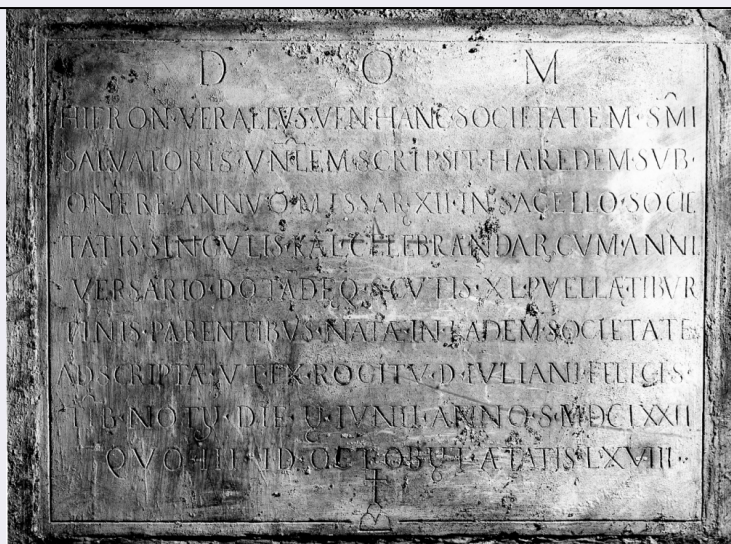 D O M
HIERON·VERALLVS·VEN·HANC·SOCIETATEM·SM̂I
SALVATORIS·VNLEM·SCRIPSIT·HÆREDEM·SVB·
ONERE·ANNVO·MISSAR·XII·IN·SACELLO·SOCIE
TATIS·SINGVLIS·KAL·CELEBRANDAR·CVM·ANNI
VERSARIO·DOTADEQ·SCVTIS·XL·PVELLA·TIBVR
TINIS·PARENTIBVS·NATA·IN·EADEM·SOCIETATE
ADSCRIPTA·VT·EX·ROGITV·D·IVLIANI·FELICIS·
TIB·NOTIJ·DIE·IJ·IVNII·ANNO·S·MDCLXXII
QVO·III·ID·OCTOB·ÆTATIS·LXVIII·